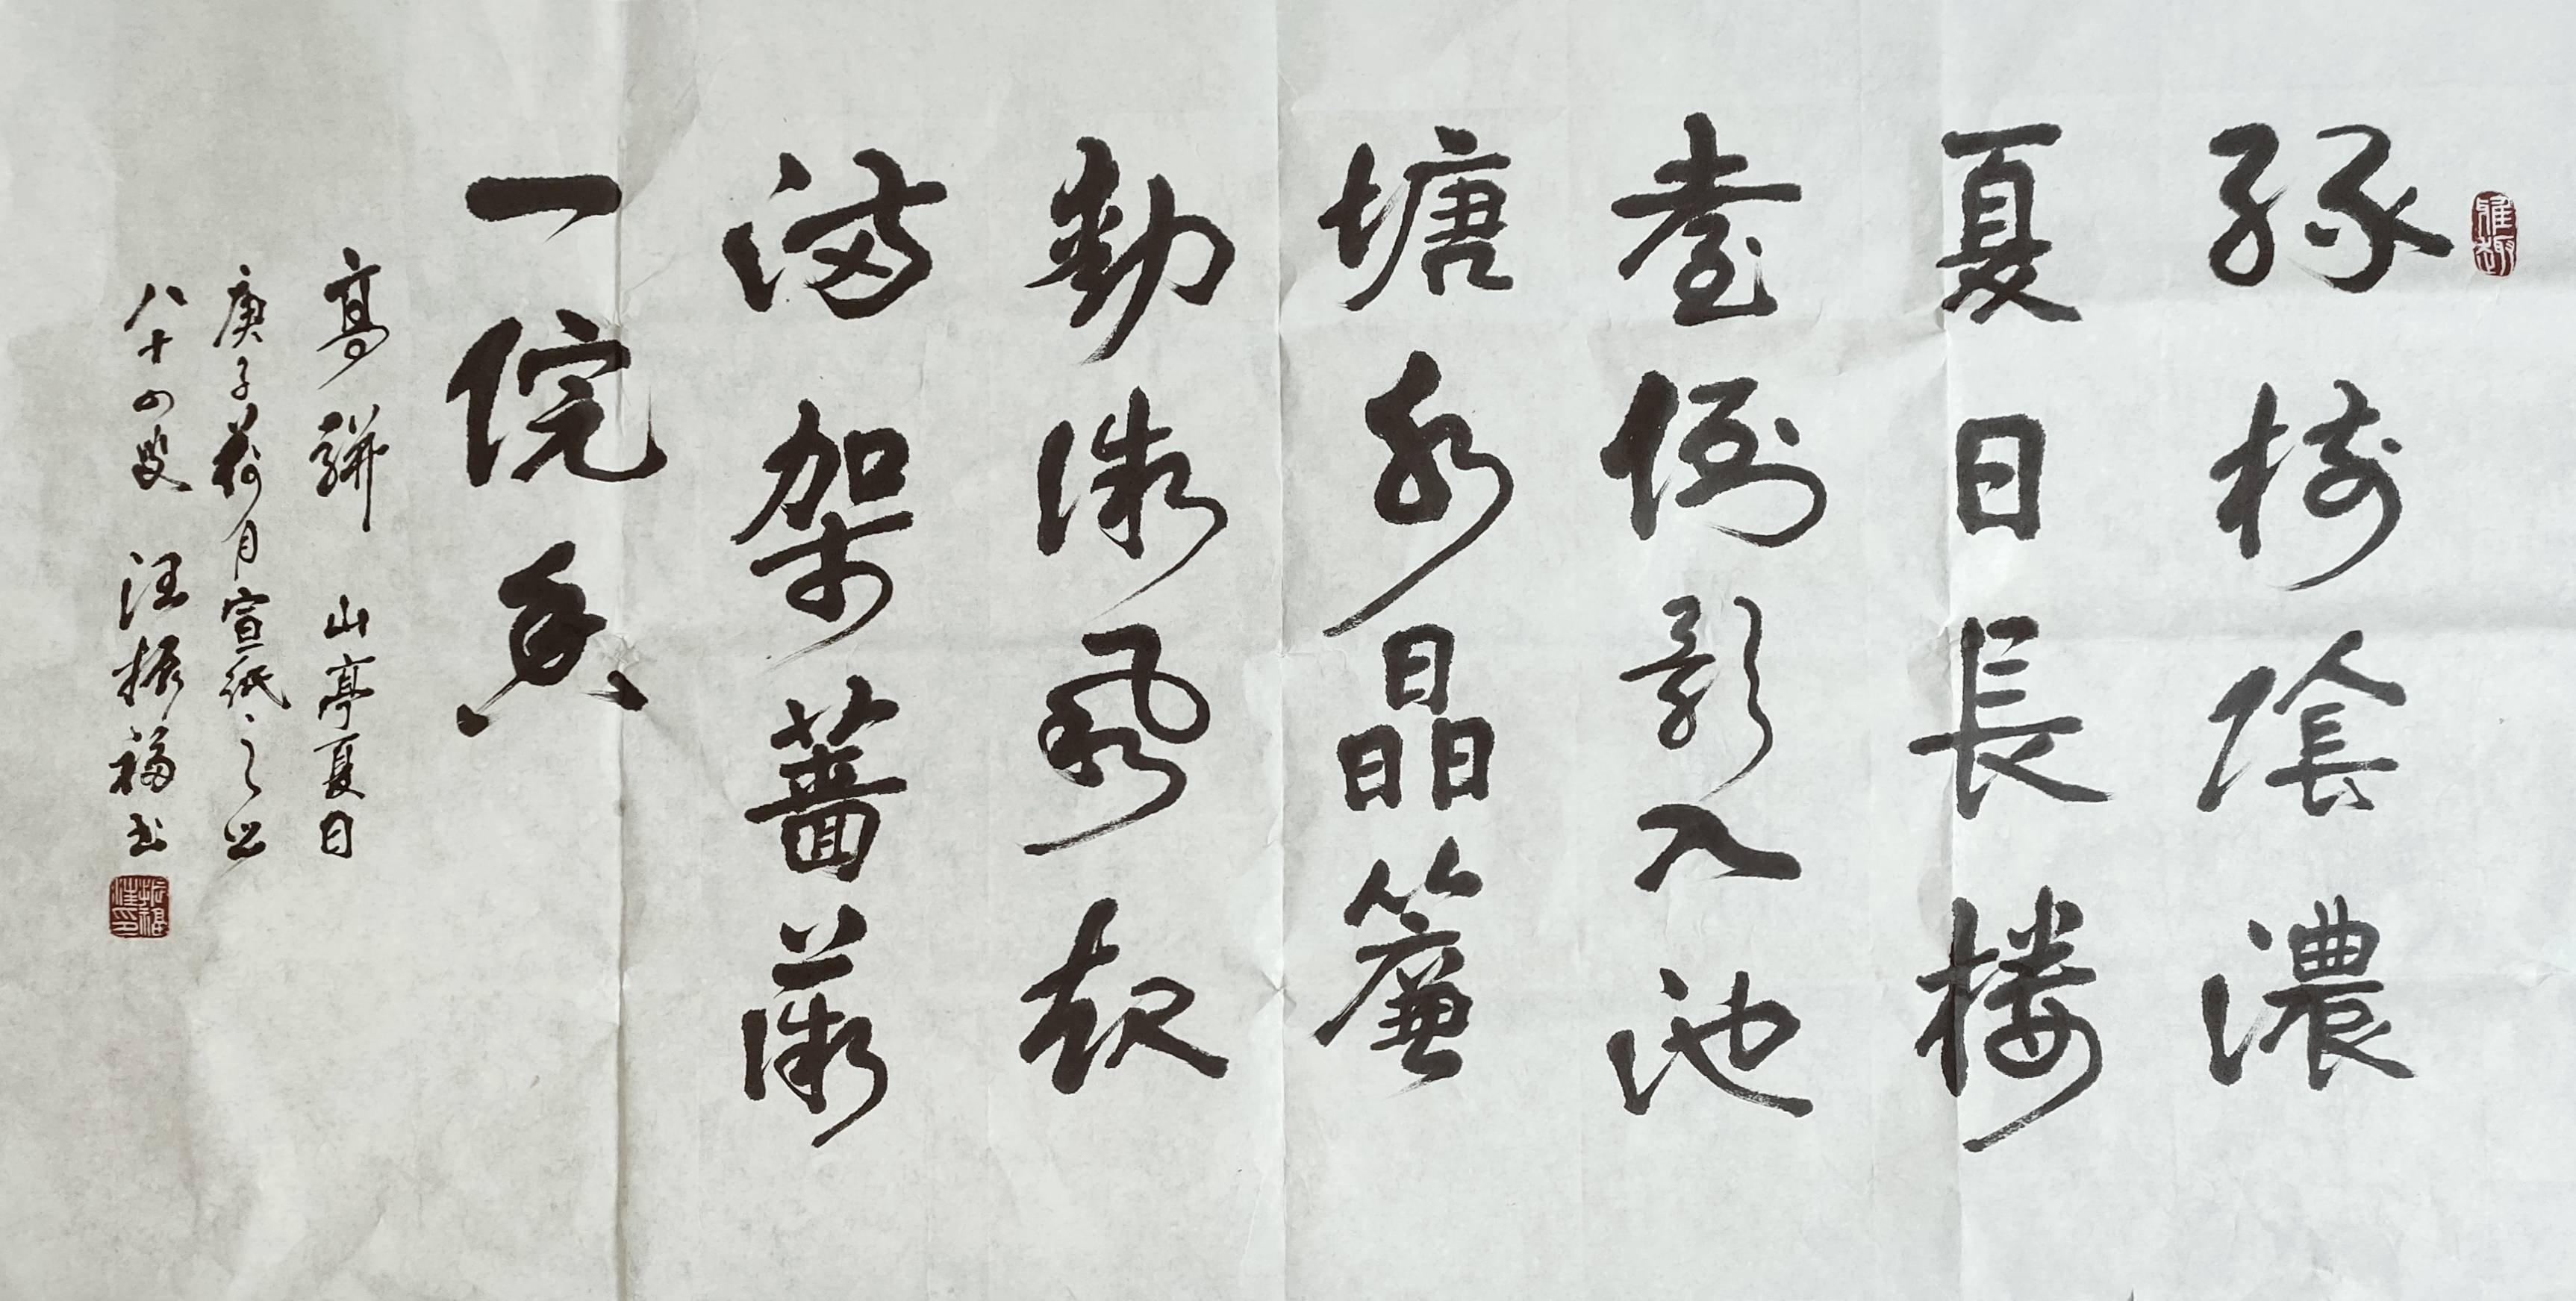 雅趣
绿樹陰濃
夏日長楼
臺倒影入池
塘水晶簾
動微風起
满架薔薇
一院香
高駢 山亭夏日
庚子荷月宣紙之
八十四叟 汪振福书
振福汪印